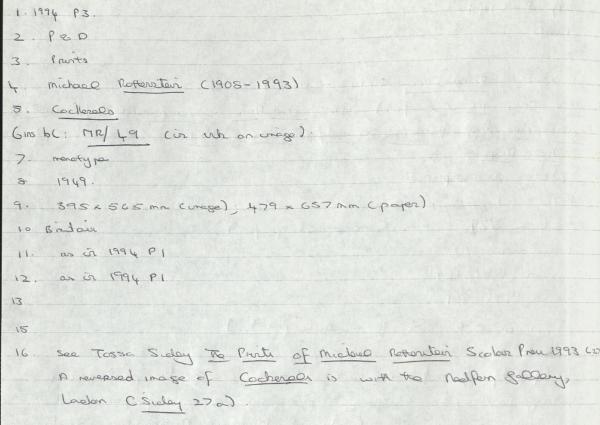 1. 1994 P3.
2. P & D
3. Prints
4. Michael Rothenstein (1908-1993)
5. Cockerels
6 ins bL: MR/49 (in wh on image).
7. monotype
8 1949.
9. 395 x 565 mm (image), 479 x 657 mm (paper)
10 Britain
11. as in 1994 P1
12. as in 1994 P1
13
15
16. See Tessa Sidey The Prints of Michael Rothenstein Scolar Press 1993 (27)
A reversed image of Cockerels is with the Redfern Gallery,
London (Sidey 27a)